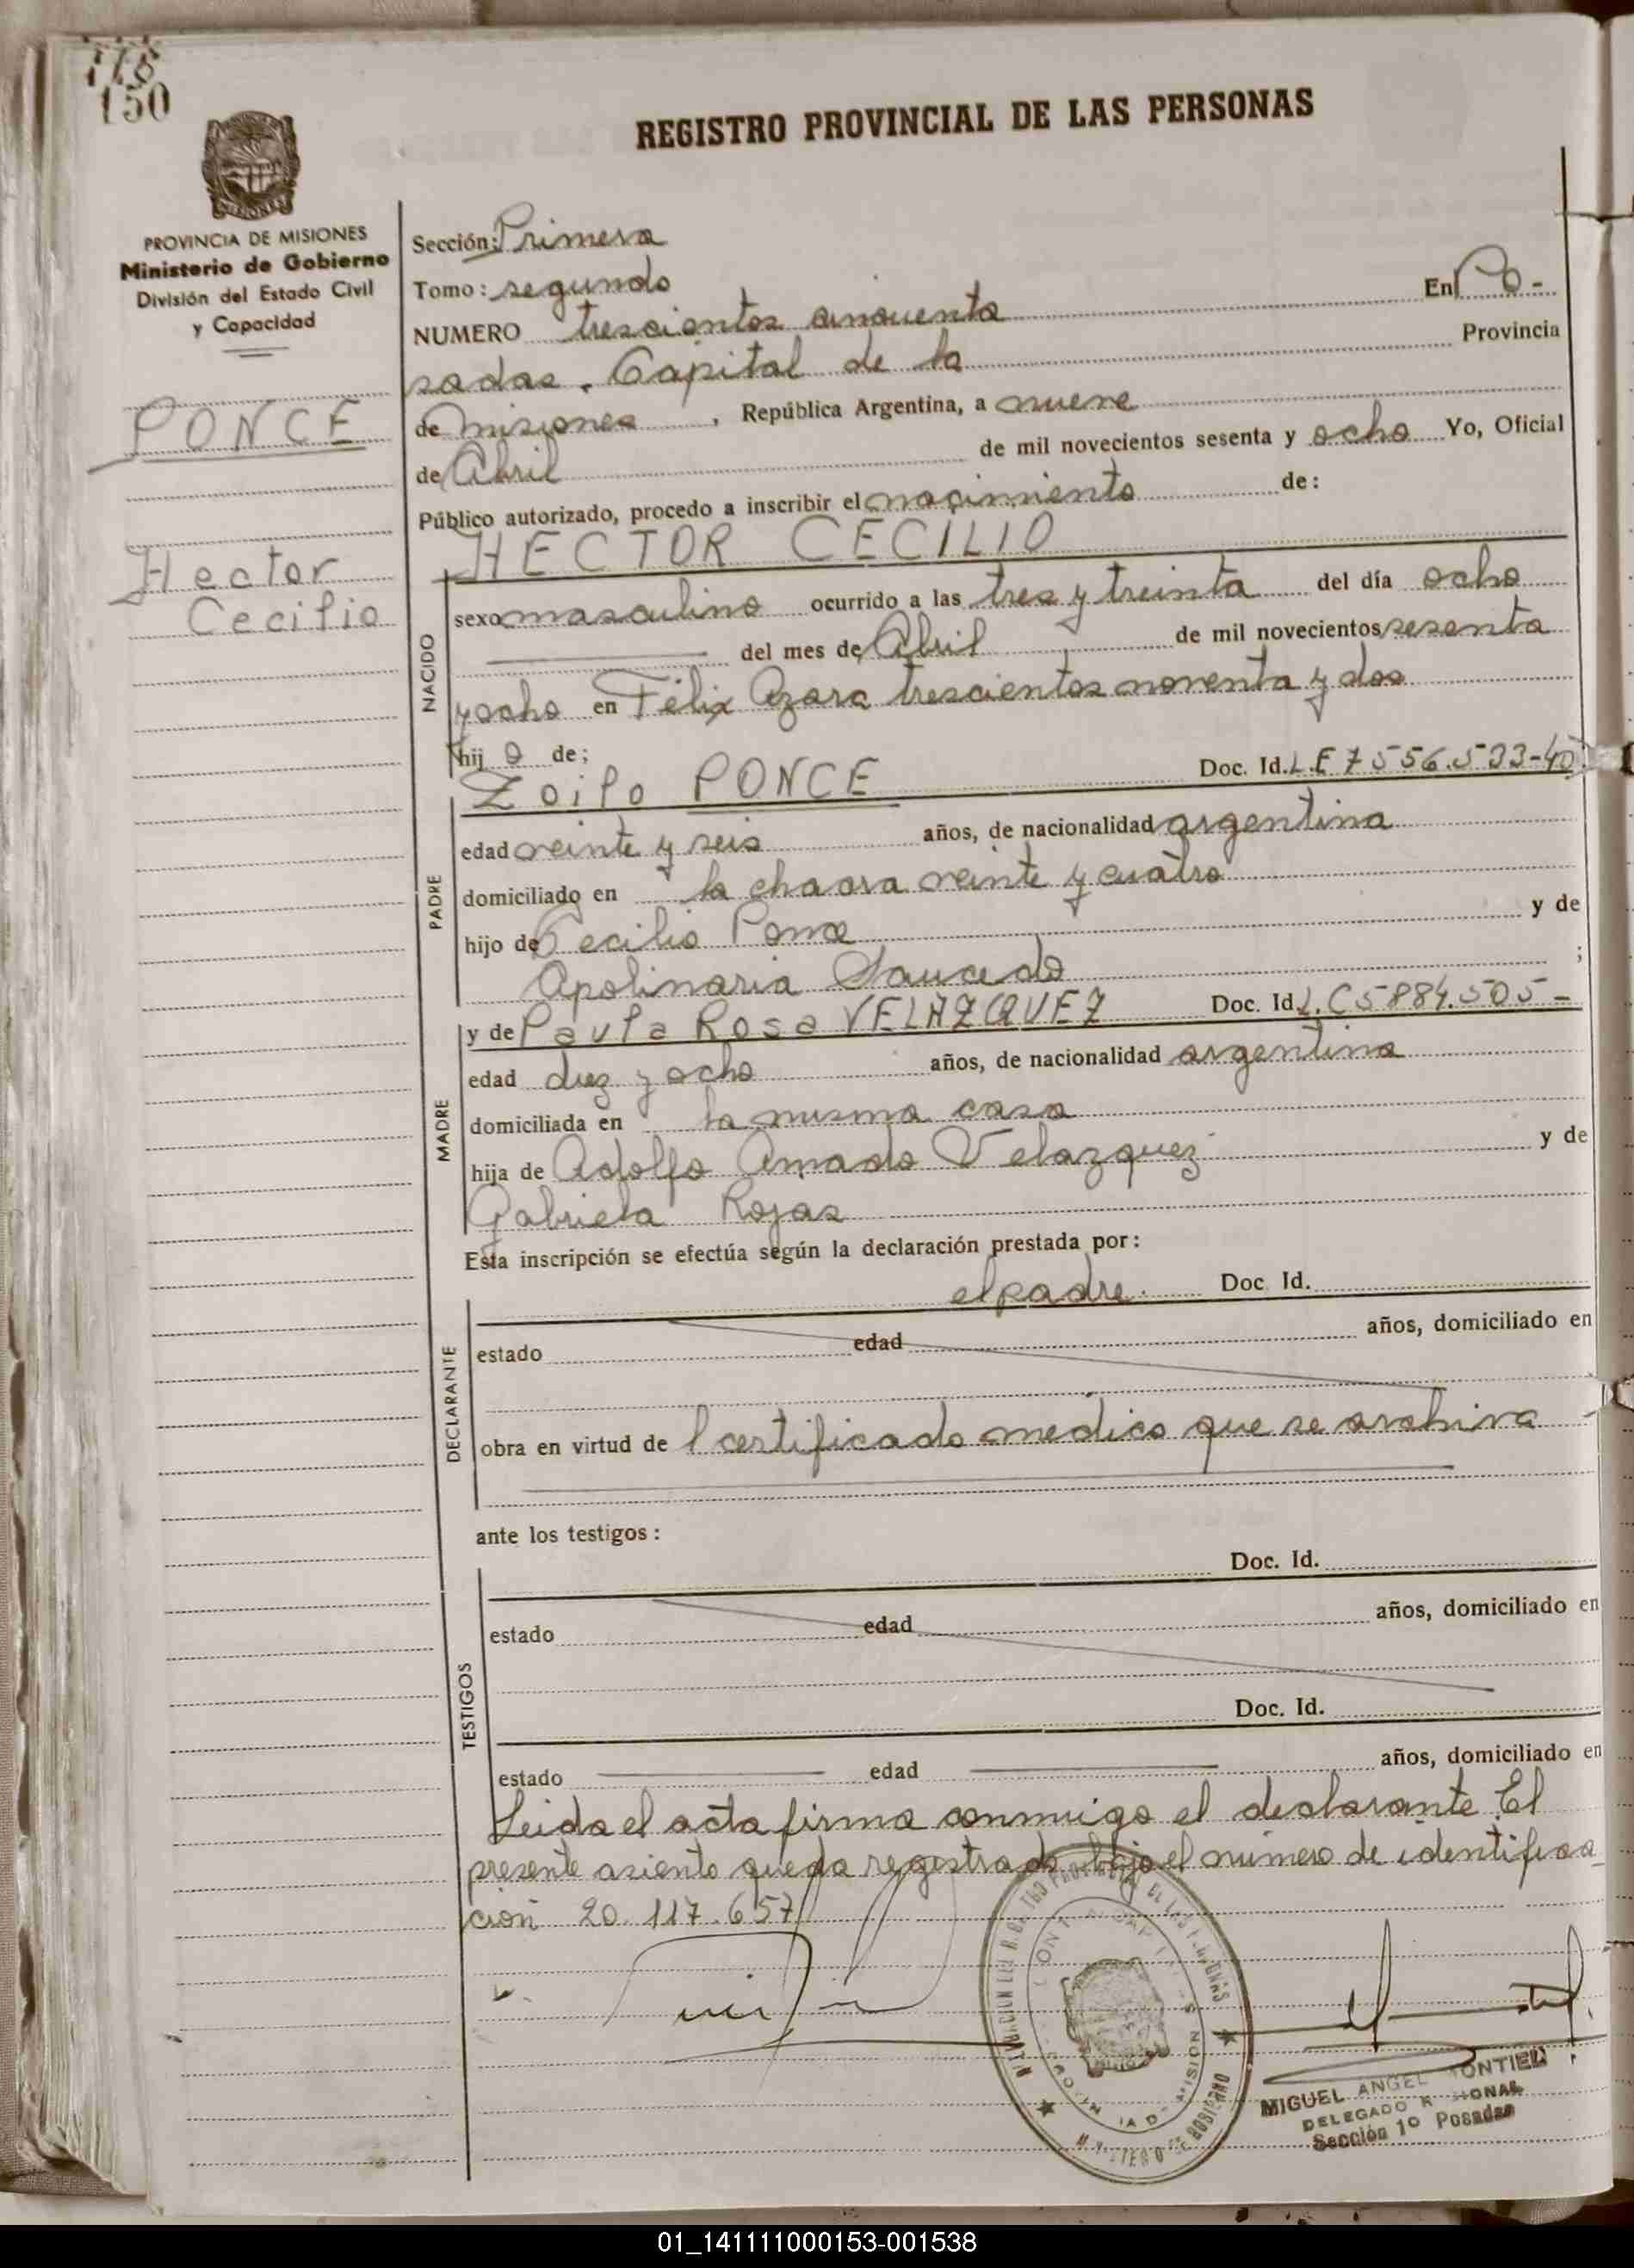 150
REGISTRO PROVINCIAL DE LAS PERSONAS
PROVINCIA DE MISIONES
Ministerio de Gobierno
División del Estado Civil
y Capacidad
PONCE
Hector
Cecilio
Sección: Primera
Tomo: segundo
NUMERO trescientos cincuenta En Po-
sadas. Capital de la Provincia
de Misiones, República Argentina, a nueve
de Abril de mil novecientos sesenta y ocho Yo, Oficial
Público autorizado, procedo a inscribir el nacimiento de:
HECTOR CECILIO
NACIDO
sexo masculino ocurrido a las tres y treinta del día ocho
del mes de Abril de mil novecientos sesenta
y ocho en Félix Azara trescientos noventa y dos
hijo de;
Zoilo PONCE Doc. Id. L.E 7556.533-40
PADRE
edad veinte y seis años, de nacionalidad argentina
domiciliado en la chacra veinte y cuatro
hijo de Cecilio Ponce y de
Apolinaria Saucedo ;
MADRE
y de Paula Rosa VELAZQUEZ Doc. Id. L.C 5884.505-
edad diez y ocho años, de nacionalidad argentina
domiciliada en la misma casa
hija de Adolfo Amado Velazquez y de
Gabriela Rojas
Esta inscripción se efectúa según la declaración prestada por:
el padre. Doc. Id.
DECLARANTE
estado edad años, domiciliado en
obra en virtud de l certificado medico que se archiva
ante los testigos:
Doc. Id.
TESTIGOS
estado edad años, domiciliado en
Doc. Id.
estado edad años, domiciliado en
Leida el acta firma conmigo el declarante. El
presente asiento queda registrado bajo el número de identifica-
ción 20.117.657
MIGUEL ANGEL MONTIEL
DELEGADO
Sección 1º Posadas
01_141111000153-001538